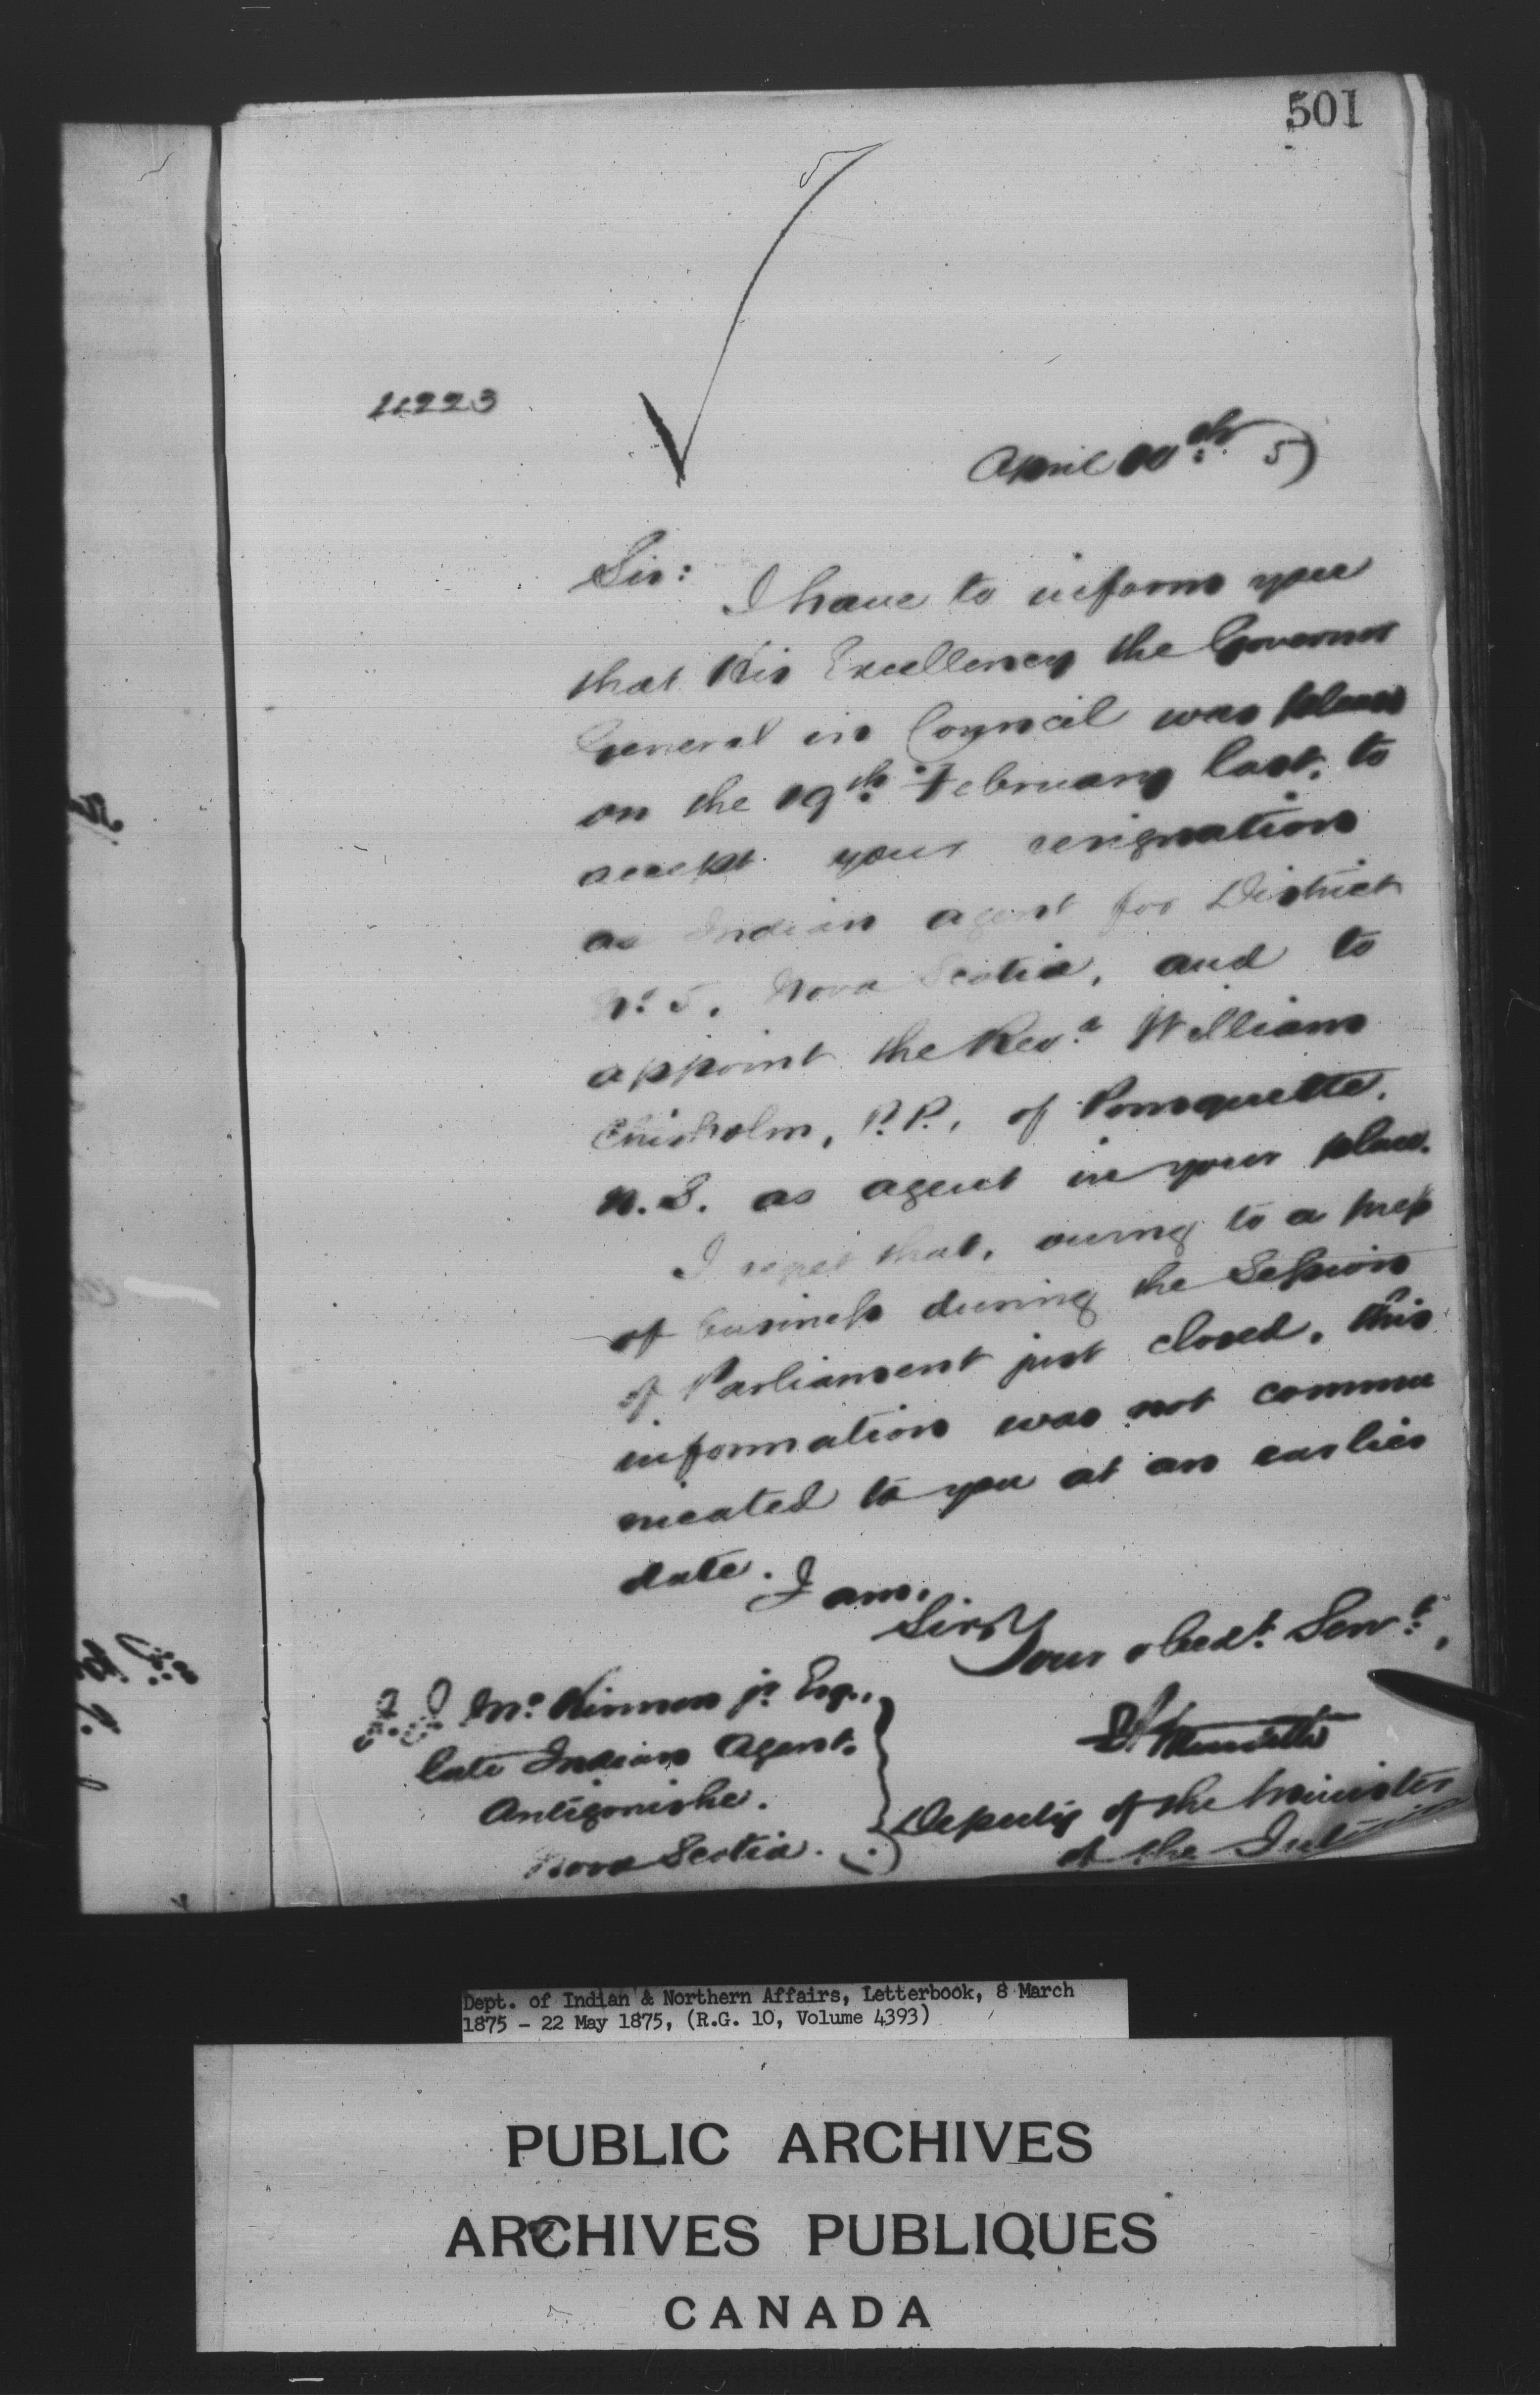 501
4223
April 10th 5
Sir:
I have to inform you
that His Excellency the Governor
General in Council was pleased
on the 19th February last, to
accept your resignation
as Indian agent for District
No 5, Nova Scotia, and to
appoint the Revd William
Chisholm, P.P., of Pomquette,
N.S. as agent in your place.
I regret that, owing to a press
of business during the Session
of Parliament just closed, this
information was not commu
nicated to you at an earlier
date.
I am,
Sir,
Your obedt Servt,
Deputy of the Minister
of the Int
Mc Kinnon jr Esq.,
late Indian Agent.
Antigonishe.
Nova Scotia.
Dept. of Indian & Northern Affairs, Letterbook, 8 March
1875 - 22 May 1875, (R.G. 10, Volume 4393)
PUBLIC ARCHIVES
ARCHIVES PUBLIQUES
CANADA